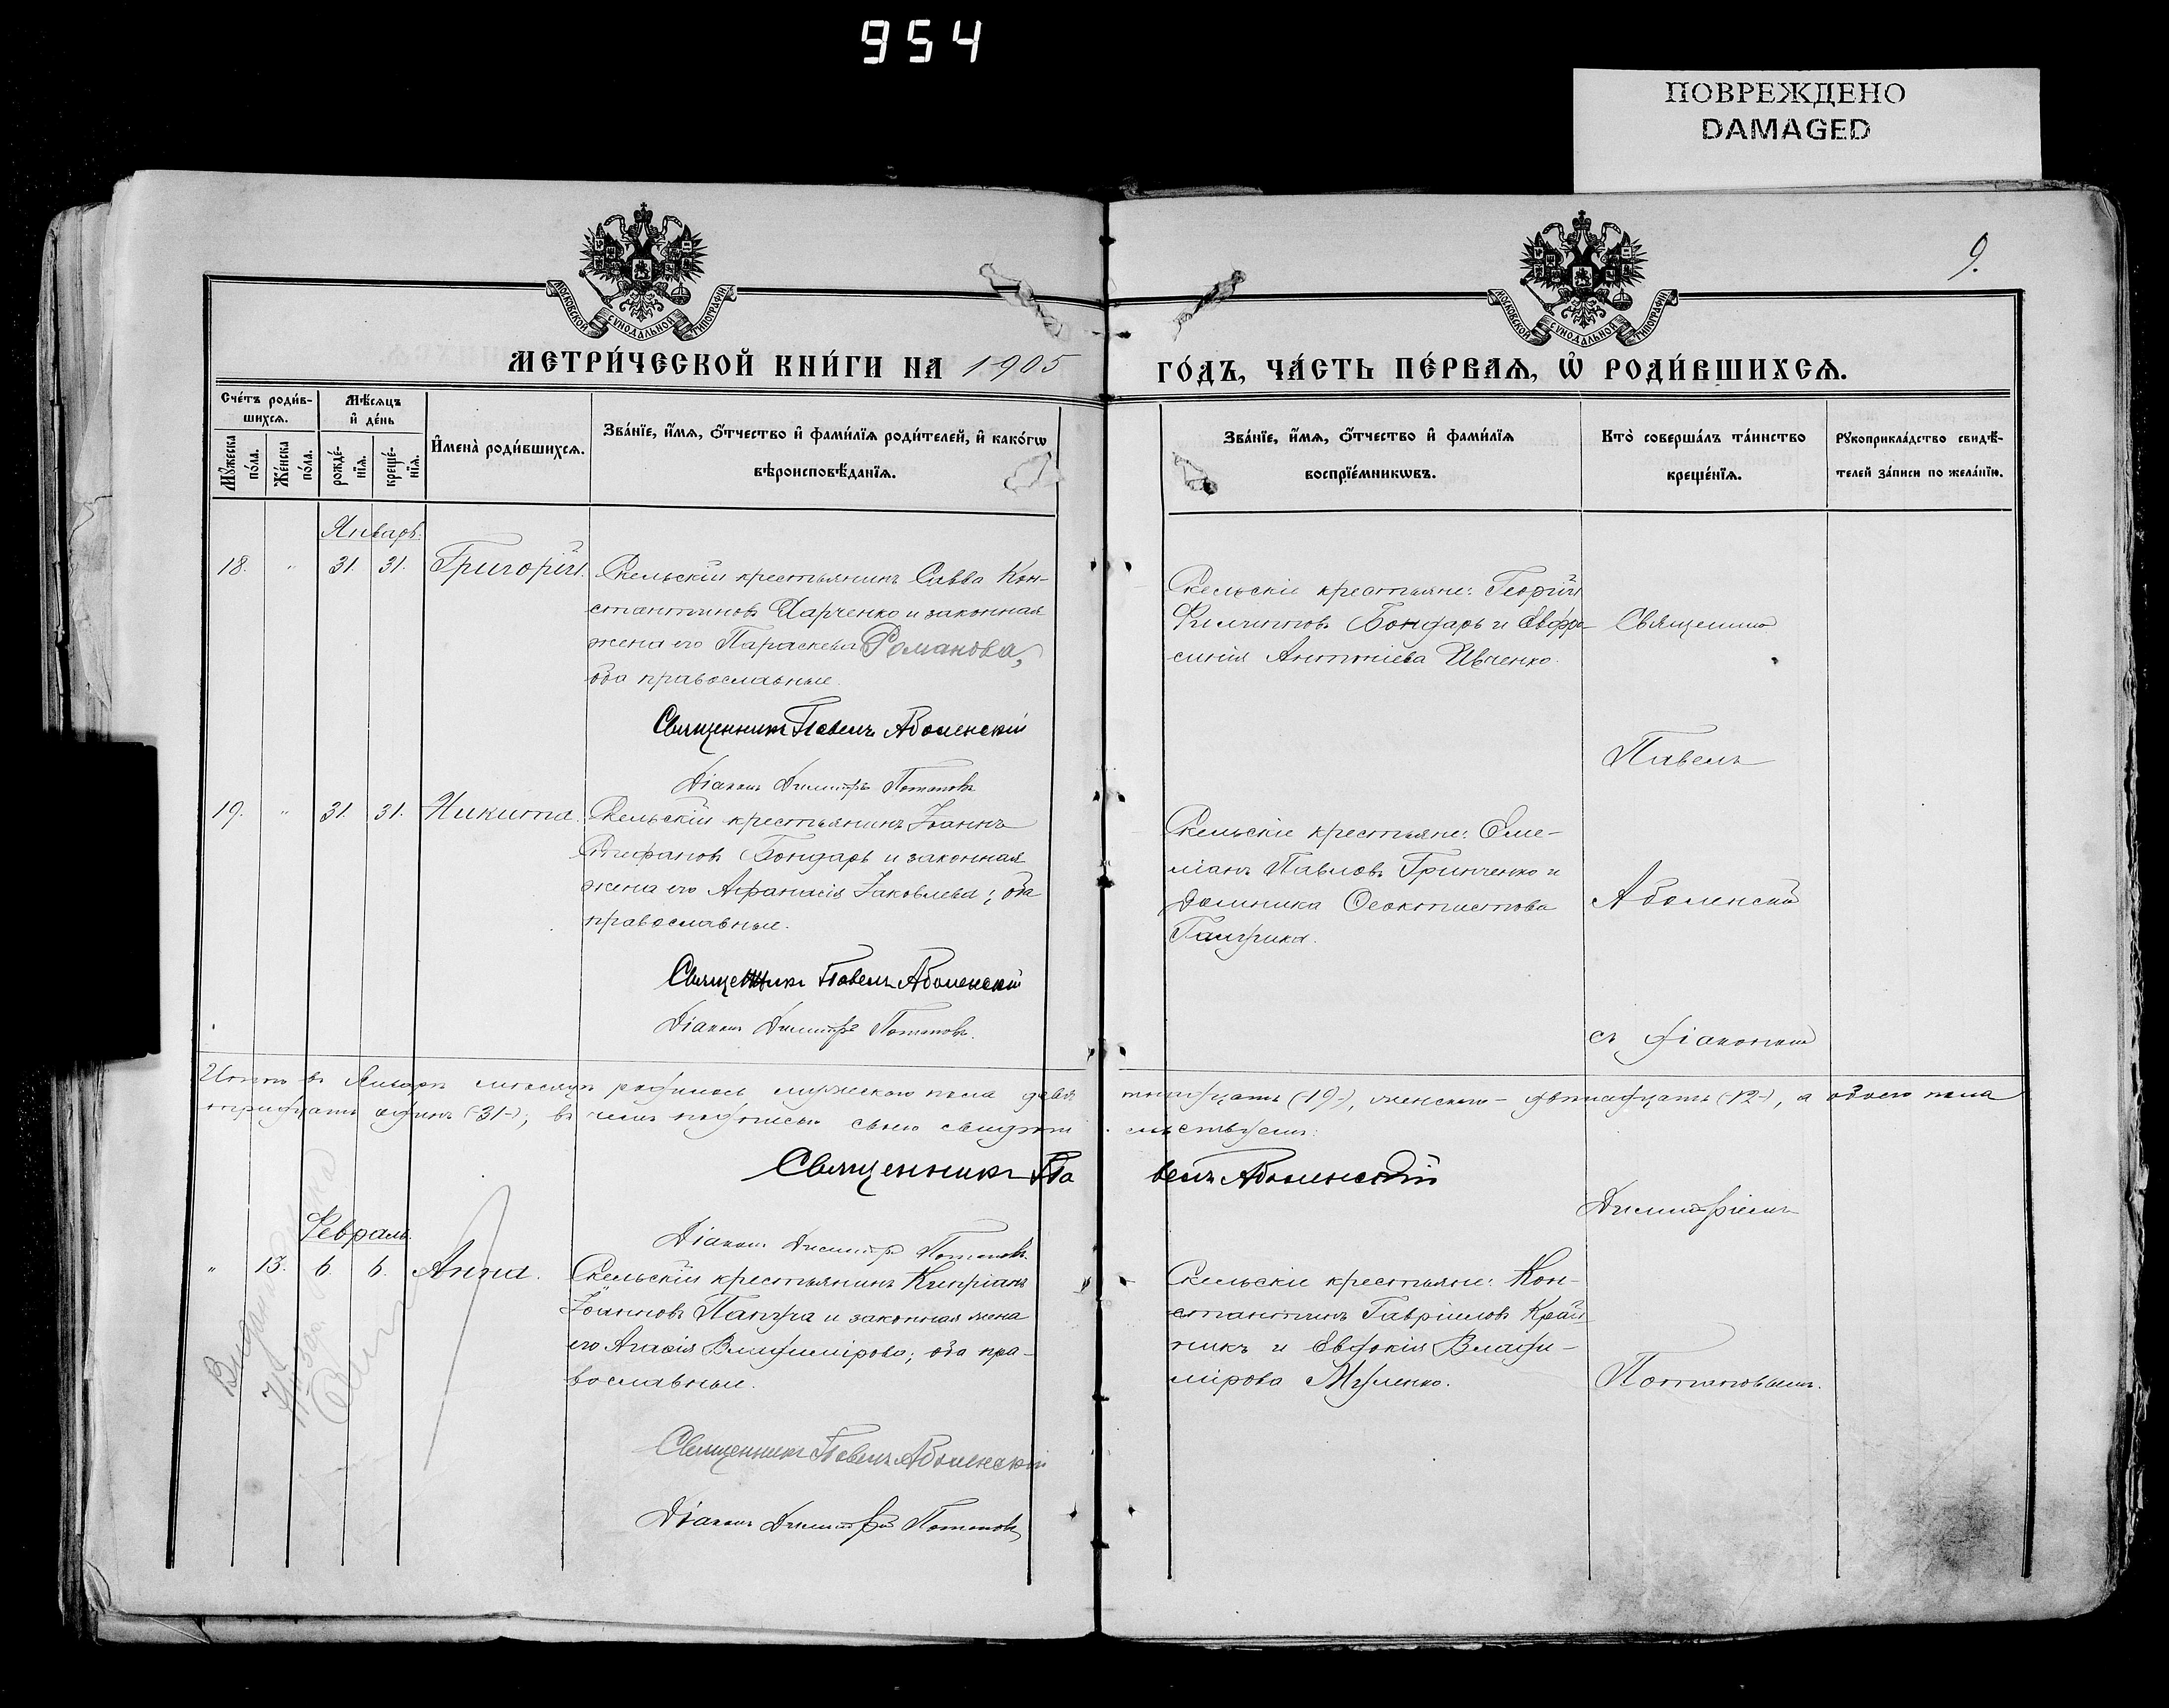 954
ПОВРЕЖДЕНО
DAMAGED
9.
МОСКОВСКОЙ СѴНОДАЛЬНОЙ ТИПОГРАФІИ
МОСКОВСКОЙ СѴНОДАЛЬНОЙ ТИПОГРАФІИ
МЕТРИ́ЧЕСКОЙ КНИ́ГИ НА 1905
ГО́ДЪ, ЧА́СТЬ ПЕ́РВАѦ, Ѡ҆ РОДИ́ВШИХСѦ.
Сче́тъ роди́в-
шихсѧ.
Мѣ́сѧцъ
и҆ де́нь
Мꙋ́жеска
по́ла.
Же́нска
по́ла.
рожде́-
нїѧ.
креще́-
нїѧ.
И҆мена̀ роди́вшихсѧ.
Зва́нїе, и҆́мѧ, о҆́тчество и҆ фами́лїѧ роди́телей, и҆ како́гѡ
вѣроисповѣ́данїѧ.
Зва́нїе, и҆́мѧ, о҆́тчество и҆ фами́лїѧ
воспрїе́мникѡвъ.
Кто̀ соверша́лъ та́инство
креще́нїѧ.
Рꙋкоприкла́дство свидѣ́-
телей за́писи по жела́нїю.
Январь.
18. " 31. 31. Григорій. Скельскій крестьянинъ Савва Кон-
стантиновъ Харченко и законная
жена его Параскева Романова,
оба православные.
Священникъ Павелъ Аболенскій
Діаконъ Димитрій Потаповъ
Скельскіе крестьяне: Георгій
Филипповъ Бондарь и Евфро-
синія Антоніева Ивченко.
Священникъ
Павелъ
19. " 31. 31. Никита. Скельскій крестьянинъ Іоаннъ
Стефановъ Бондарь и законная
жена его Афанасія Іаковлева; оба
православные.
Священникъ Павелъ Аболенскій
Діаконъ Димитрій Потаповъ.
Скельскіе крестьяне: Еме-
ліанъ Павловъ Гринченко и
Домника Феоктистова
Аболенскій
съ діакономъ
Итого въ Январѣ мѣсяцѣ родилось мужескаго пола девят-
надцать (-19-), женскаго - двѣнадцать (-12-), а обоего пола
тридцать одинъ (-31-); въ чемъ подписью своею свидѣтель-
ствуемъ:
Священникъ Павелъ Аболенскій
Діаконъ Димитрій Потаповъ.
Димитріемъ
Февраль.
" 13. 6. 6. Анна. Скельскій крестьянинъ Кипріанъ
Іоанновъ Папуча и законная жена
его Анасія Владимірова; оба пра-
вославные.
Священникъ Павелъ Аболенскій
Діаконъ Димитрій Потаповъ
Скельскіе крестьяне: Кон-
стантинъ Гавріиловъ Край-
никъ и Евдокія Влади-
мірова
Потаповымъ.